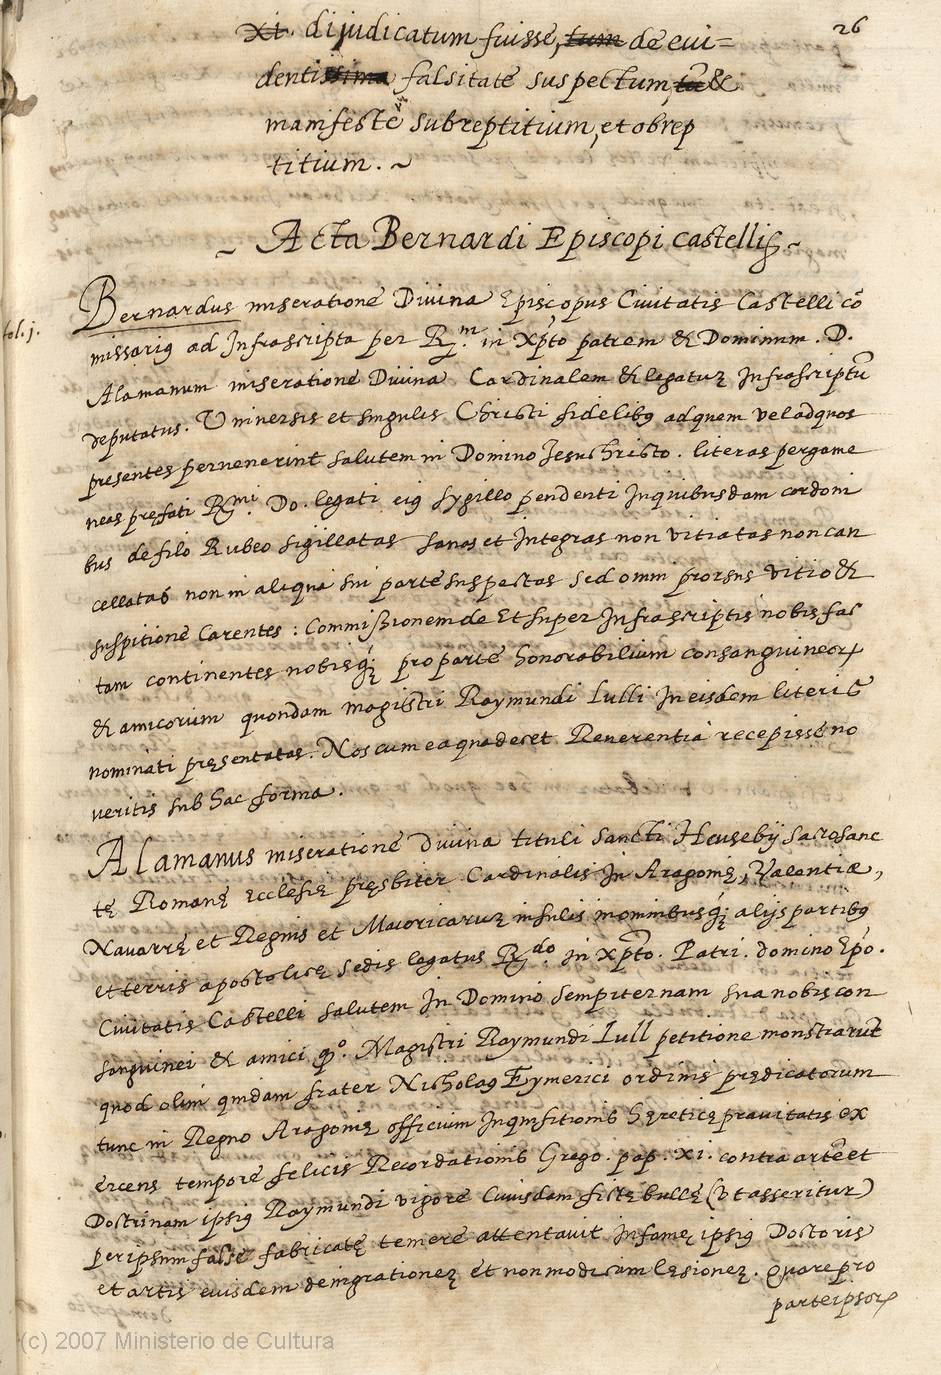 26
xi. dijudicatum fuisse, tum de eui=
dentissima falsitate suspectum, tũ &
manifeste subreptitium, et obrep
titium. ~
~ Acta Bernardi Episcopi castellię ~
fol. j.
Bernardus miseratione Diuina Episcopus Ciuitatis Castelli cõ
missariꝰ ad Infrascripta per R.ᵐ in Xp̃to patrem & Dominum. D.
Alamanum miseratione Diuina Cardinalem & legatuꝫ Infrascriptũ
deputatus. Vniuersis et singulis Christi fidelibꝰ ad quem vel ad quos
presentes peruenerint salutem in Domino Jesu Christo. literas pergame
neas pręfati R.ᵐⁱ Do. legati eiꝰ sygillo pendenti In quibusdam cordoni
bus de filo Rubeo sigillatas sanas et Integras non vitiatas non can
cellatas non in aliqua sui parte suspectas sed omni prorsus vitio &
suspitione Carentes: Commissionem de Et super Infrascriptis nobis fac
tam continentes nobisq́ꝫ pro parte honorabilium consanguineoꝝ
& amicorum quondam magistri Raymundi Lulli In eisdem literis
nominati pręsentatas. Nos cum ea qua decet Reuerentia recepisse no
ueritis sub hac forma.
Alamanus miseratione diuina tituli Sancti Heusebij sacrosanc
tę Romanę Ecclesię pręsbiter Cardinalis In Aragonię, Valentiæ,
Nauarrę et Regnis et Maioricaruꝫ insulis, nominibusq́ꝫ alijs partibꝰ
et terris apostolicę sedis legatus R.ᵈᵒ In Xp̃to. Patri. domino Ep̃o.
Ciuitatis Castelli salutem In Domino sempiternam sua nobis con
sanguinei & amici qº. Magistri Raymundi Lull petitione monstrarũt
quod olim quidam frater Nicholaꝰ Eymerici ordinis prędicatorum
tunc in Regno Aragonię officium Inquisitionis hęreticę prauitatis ex
ercens tempore felicis Recordationis Grego. pap. xi. contra artẽ et
Doctrinam ipsiꝰ Raymundi vigore Cuiusdam fictę bullę (vt asseritur)
per ipsum false fabricatę temere attentauit Infamę ipsiꝰ Doctoris
et artis eiusdem denigrationeꝫ et non modicam lęsioneꝫ. Quare pro
parte ipsoꝝ
(c) 2007 Ministerio de Cultura